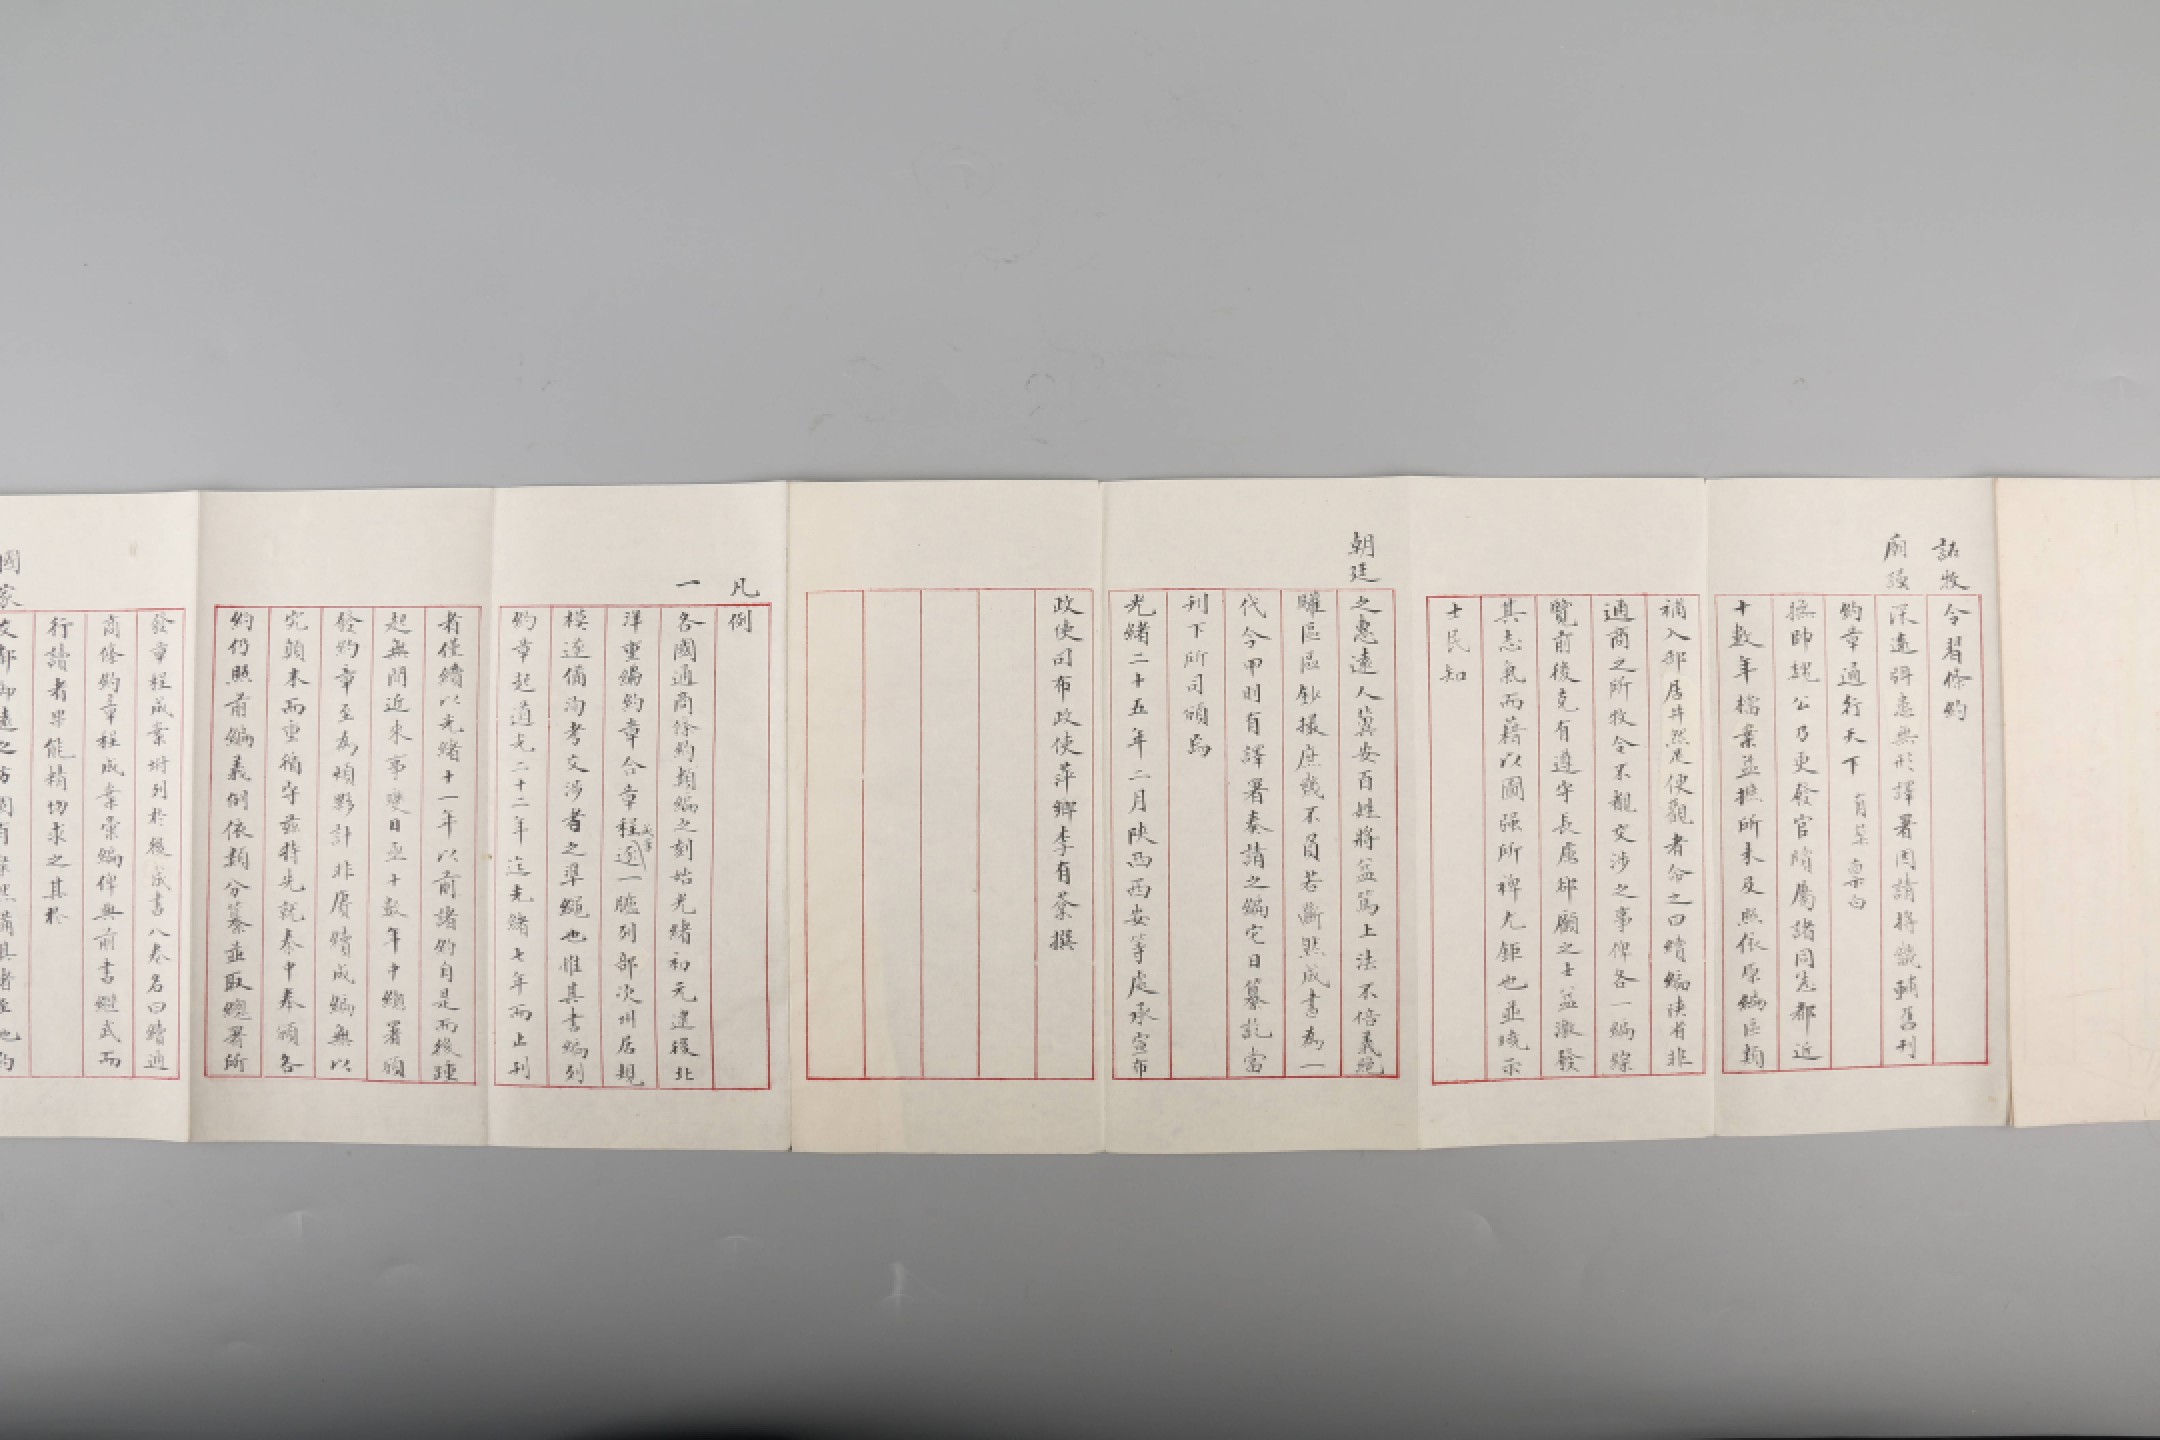 詁牧令習條約
廟謨深遠弭患無形譯署因請將鐵輔呂刊
約章通行天下有棻稟白
撫帥魏公乃更發官牘屬諸同志都近
十數年檔案並摭所未及照依原編區類
補入部居井然足使觀者分之曰續編決者非
通商之所牧令不親交涉之事俾各一編綜
覽前後克有遵守長厲鄉願之士益激發
其志氣而藉以圖强所裨尤鉅也並曉示
士民知
朝廷之惠遠人冀安百姓將益篤上法不倍義絕
驩區區鈔撮庶幾不負若斷然成書為一
代令甲則有譯署奏請之編它日纂訖當
刊下所司頒焉
光緒二十五年二月陝西西安等處承宣布
政使司布政使萍鄉李有棻撰
凡例
一各國通商條約類編之刻始光緒初元逮後北
洋重編約章合章程成案逐一臚列部次州居規
模遂備洵考交涉者之準繩也惟其書編列
約章起道光二十二年迄光緒七年而止刊
者僅續以光緒十一年以前諸約自是而後踵
起無間近來事變日亟十數年中總署頒
發約章至為頻夥計非賡續成編無以
究顛末而重循守茲特先就奉中奉頒各
約仍照前編義例依類分纂並取總署所
發章程成案坿列於後成書八卷名曰續通
商條約章程成案彙編俾與前書繼武而
行讀者果能精切求之其於
國家